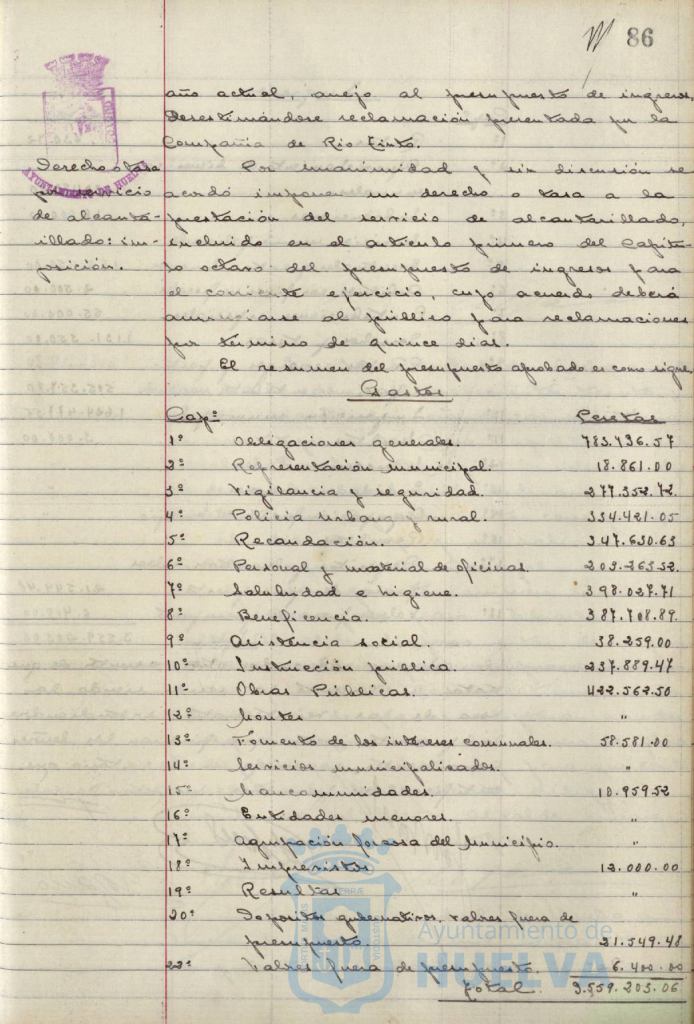 86
año actual, anejo al presupuesto de ingresos,
Desestimándose reclamación presentada por la
Compañía de Rio Tinto.
Derecho o tasa
por servicio
de alcanta-
illado: im-
posición.
AYUNTAMIENTO DE HUELVA
Por unanimidad y sin discusión se
acordó imponer un derecho o tasa a la
prestación del servicio de alcantarillado,
incluido en el artículo primero del Capítu-
lo octavo del presupuesto de ingresos para
el corriente ejercicio, cuyo acuerdo deberá
anunciarse al público para reclamaciones
por término de quince dias.
El resumen del presupuesto aprobado es como sigue
Gastos
Cap.º Pesetas
1º Obligaciones generales. 783.736.57
2º Representación municipal. 18.861.00
3º Vigilancia y seguridad. 277.352.72
4º Policia urbana y rural. 334.421.05
5º Recaudación. 347.630.63
6º Personal y material de oficinas. 203.263.52
7º Salubridad e higiene. 398.027.71
8º Beneficencia. 387.708.89
9º Asistencia social. 38.259.00
10º Instrucción pública. 237.889.47
11º Obras Públicas. 422.562.50
12º Montes "
13º Fomento de los intereses comunales. 58.581.00
14º Servicios municipalizados. "
15º Mancomunidades. 10.959.52
16º Entidades menores. "
17º Agrupación forzosa del Municipio. "
18º Imprevistos 12.000.00
19º Resultas "
20º Depositos gubernativos, valores fuera de
presupuesto. 21.549.48
22º Valores fuera de presupuesto. 6.400.00
Total. 3.559.203.06
Ayuntamiento de
HUELVA